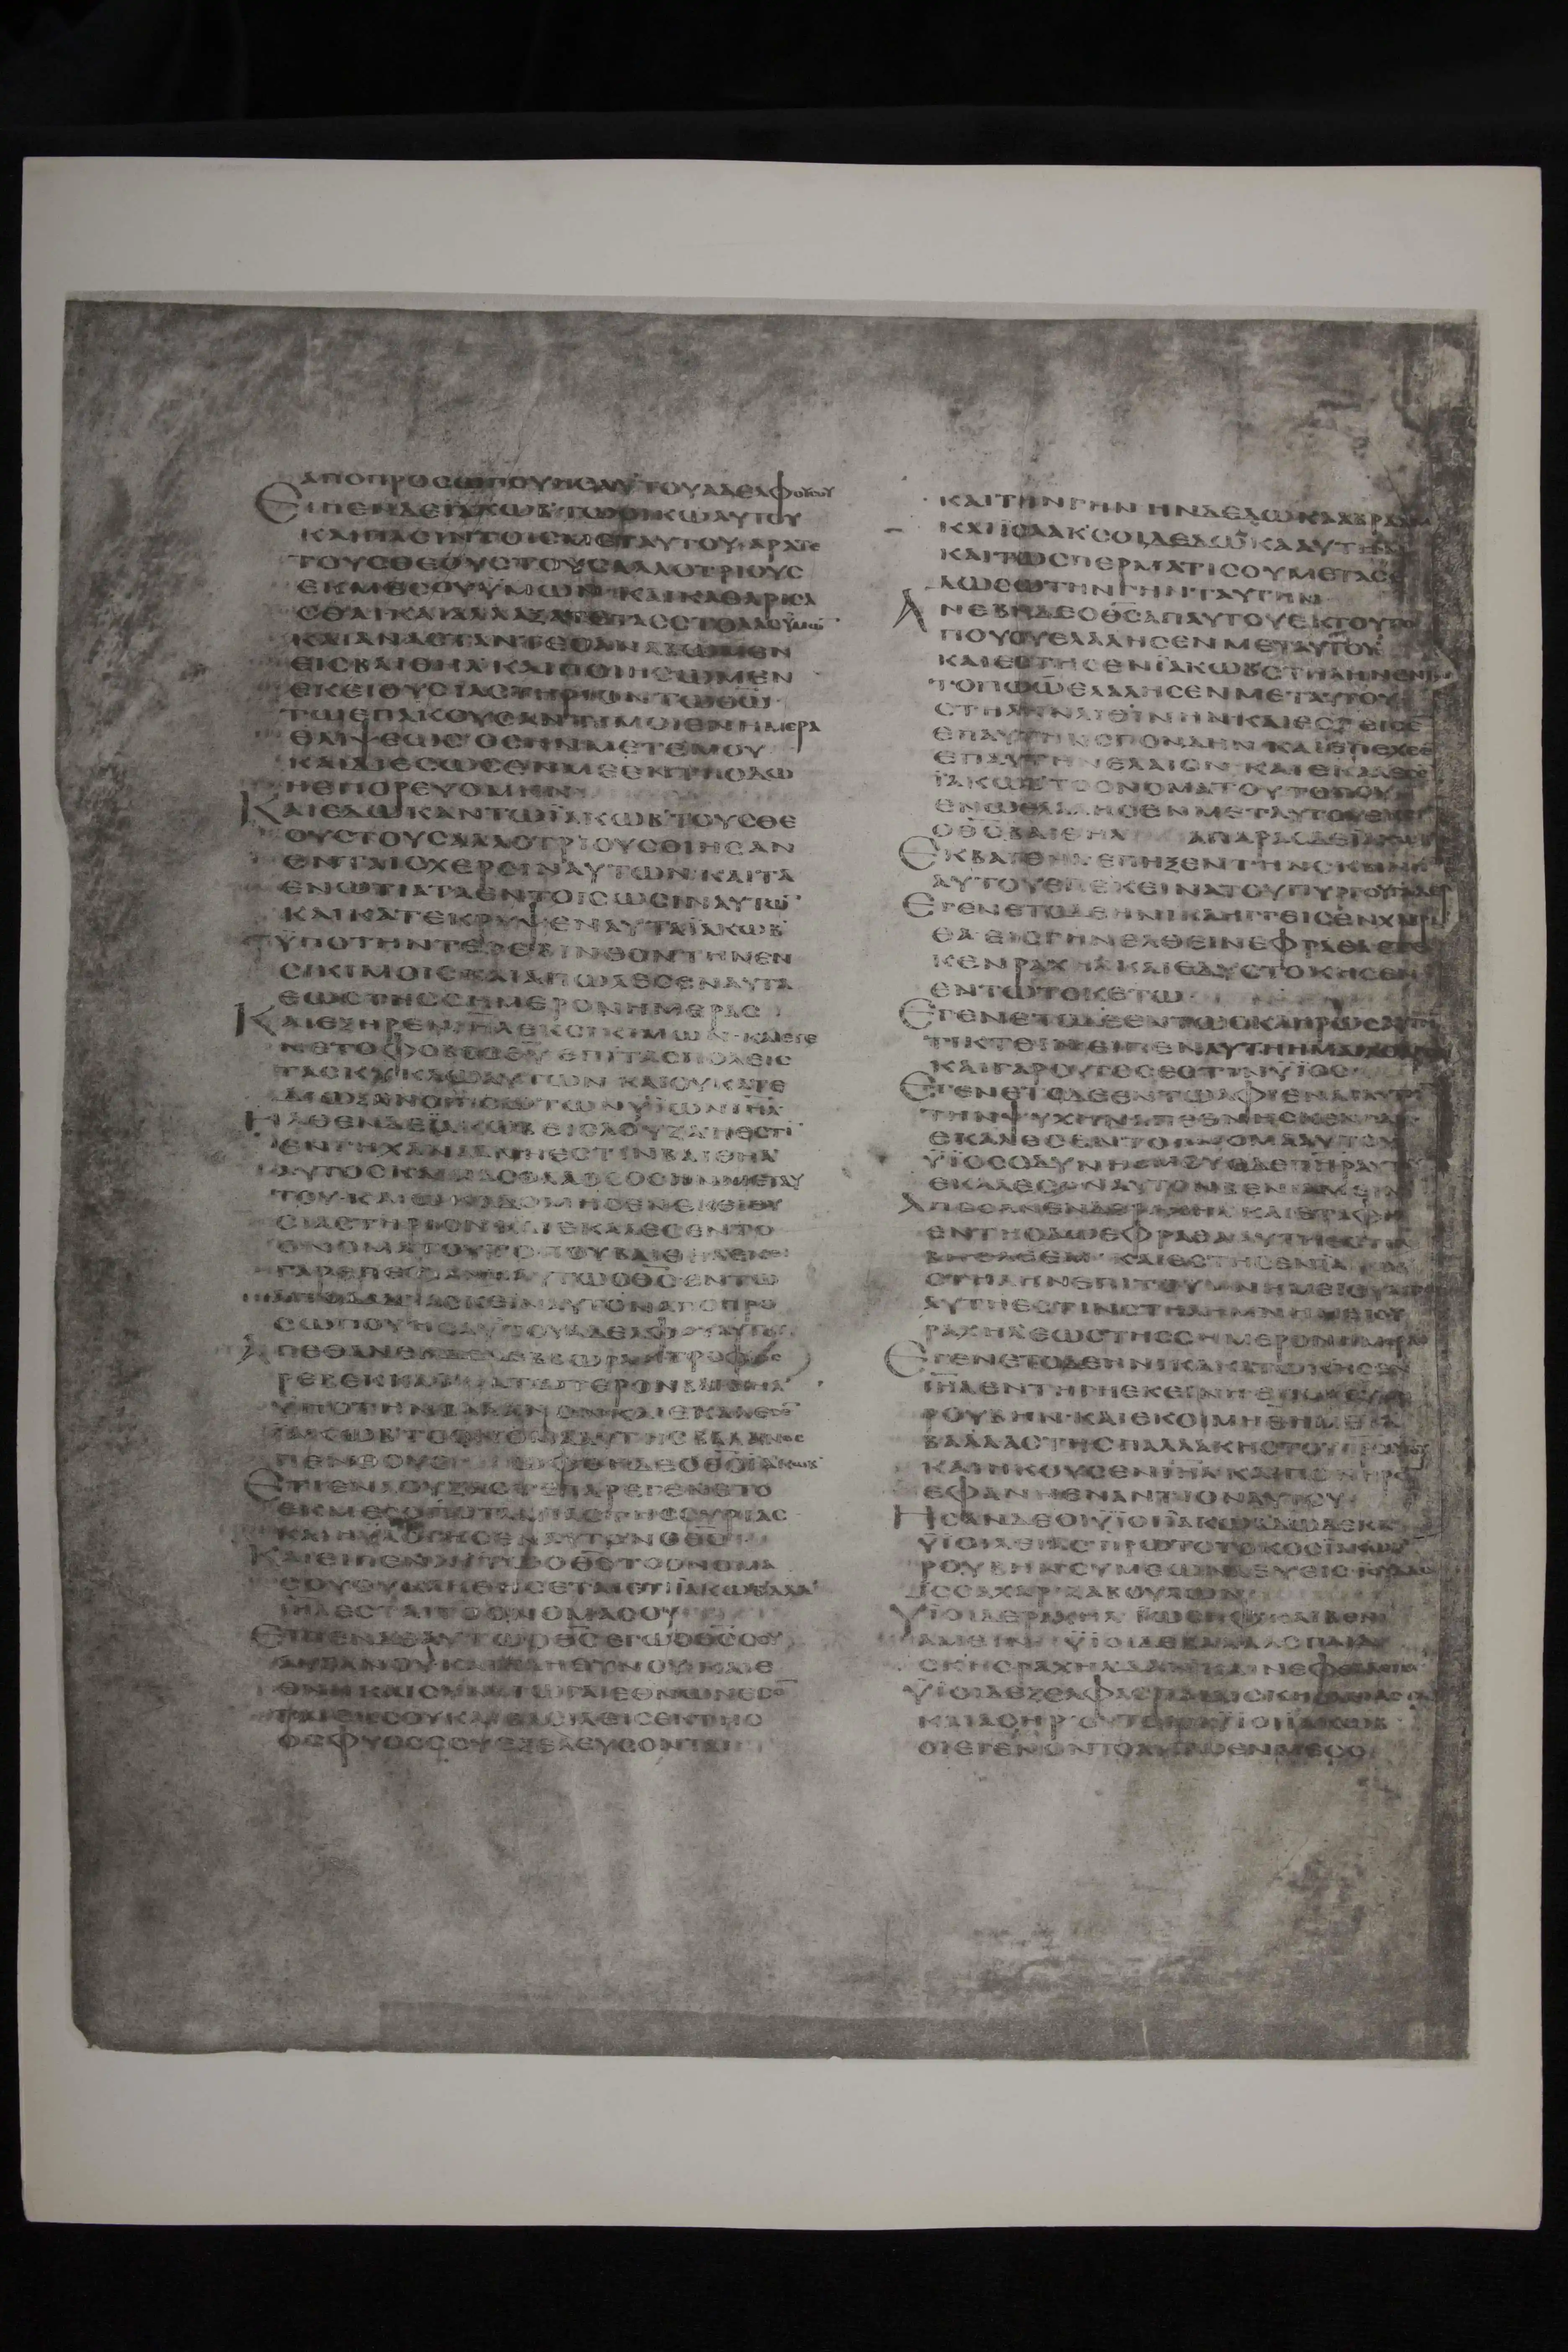 ΑΠΟΠΡΟΣΩΠΟΥΗΣΑΥΤΟΥΑΔΕΛΦΟΥΣΟΥ
ΕΙΠΕΝΔΕΪΑΚΩΒΤΩΟΙΚΩΑΥΤΟΥ
ΚΑΙΠΑΣΙΝΤΟΙΣΜΕΤΑΥΤΟΥΑΡΑΤΕ
ΤΟΥΣΘΕΟΥΣΤΟΥΣΑΛΛΟΤΡΙΟΥΣ
ΕΚΜΕΣΟΥΫΜΩΝΚΑΙΚΑΘΑΡΙΣΑ
ΣΘΑΙΚΑΙΑΛΛΑΞΑΤΕΤΑΣΣΤΟΛΑΣΫΜΩ̄
ΚΑΙΑΝΑΣΤΑΝΤΕΣΑΝΑΒΩΜΕΝ
ΕΙΣΒΑΙΘΗΛΚΑΙΠΟΙΗΣΩΜΕΝ
ΕΚΕΙΘΥΣΙΑΣΤΗΡΙΟΝΤΩΘ̄Ω̄
ΤΩΕΠΑΚΟΥΣΑΝΤΙΜΟΙΕΝΗΜΕΡΑ
ΘΛΙΨΕΩΣΟΣΗΝΜΕΤΕΜΟΥ
ΚΑΙΔΙΕΣΩΣΕΝΜΕΕΝΤΗΟΔΩ
ΗΕΠΟΡΕΥΟΜΗΝ
ΚΑΙΕΔΩΚΑΝΤΩΪΑΚΩΒΤΟΥΣΘΕ
ΟΥΣΤΟΥΣΑΛΛΟΤΡΙΟΥΣΟΙΗΣΑΝ
ΕΝΤΑΙΣΧΕΡΣΙΝΑΥΤΩΝΚΑΙΤΑ
ΕΝΩΤΙΑΤΑΕΝΤΟΙΣΩΣΙΝΑΥΤΩ̄
ΚΑΙΚΑΤΕΚΡΥΨΕΝΑΥΤΑΪΑΚΩΒ
ΫΠΟΤΗΝΤΕΡΕΒΙΝΘΟΝΤΗΝΕΝ
ΣΙΚΙΜΟΙΣΚΑΙΑΠΩΛΕΣΕΝΑΥΤΑ
ΕΩΣΤΗΣΣΗΜΕΡΟΝΗΜΕΡΑΣ
ΚΑΙΕΞΗΡΕΝῙΗ̄Λ̄ΕΚΣΙΚΙΜΩΝΚΑΙΕΓΕ
ΝΕΤΟΦΟΒΟΣΘ̄Ῡ ΕΠΙΤΑΣΠΟΛΕΙΣ
ΤΑΣΚΥΚΛΩΑΥΤΩΝΚΑΙΟΥΚΑΤΕ
ΔΙΩΞΑΝΟΠΙΣΩΤΩΝΫΙΩΝῙΗ̄Λ̄
ΗΛΘΕΝΔΕΪΑΚΩΒΕΙΣΛΟΥΖΑΗΕΣΤῙ
ΕΝΓΗΧΑΝΑΑΝΗΕΣΤΙΝΒΑΙΘΗΛ
ΤΟΥΚΑΙΩΚΟΔΟΜΗΣΕΝΕΚΕΙΘΥ
ΣΙΑΣΤΗΡΙΟΝΚΑΙΕΚΑΛΕΣΕΝΤΟ
ΟΝΟΜΑΤΟΥΤΟΠΟΥΒΑΙΘΗΛΕΚΕΙ
ΓΑΡΕΠΕΦΑΝΗΑΥΤΩΟΘ̄Σ̄ΕΝΤΩ
ΣΩΠΟΥΗΣΑΥΤΟΥΑΔΕΛΦΟΥΑΥΤΟΥ
ΑΠΕΘΑΝΕΝΔΕΔΕΒΒΩΡΑΗΤΡΟΦΟΣ
ΡΕΒΕΚΚΑΣΚΑΤΩΤΕΡΟΝΒΑΙΘΗΛ
ΫΠΟΤΗΝΒΑΛΑΝΟΝΚΑΙΕΚΑΛΕΣΕ̄
ΪΑΚΩΒΤΟΟΝΟΜΑΑΥΤΗΣΒΑΛΑΝΟΣ
ΕΚΜΕΣΟΠΟΤΑΜΙΑΣΤΗΣΣΥΡΙΑΣ
ΚΑΙΗΥΛΟΓΗΣΕΝΑΥΤΟΝΟΘ̄Σ̄
ΚΑΙΕΙΠΕΝΑΥΤΩΟΘ̄Σ̄ΤΟΟΝΟΜΑ
ΣΟΥΟΥΚΛΗΘΗΣΕΤΑΙΕΤΙΪΑΚΩΒΑΛΛ
ῙΗ̄Λ̄ΕΣΤΑΙΤΟΟΝΟΜΑΣΟΥ
ΕΙΠΕΝΔΕΑΥΤΩΟΘ̄Σ̄ΕΓΩΟΘ̄Σ̄ΣΟΥ
ΑΥΞΑΝΟΥΚΑΙΠΛΗΘΥΝΟΥΚΑΙΕ
ΘΝΗΚΑΙΣΥΝΑΓΩΓΑΙΕΘΝΩΝΕΣΟ̄
ΤΑΙΕΚΣΟΥΚΑΙΒΑΣΙΛΕΙΣΕΚΤΗΣΟ
ΣΦΥΟΣΣΟΥΕΞΕΛΕΥΣΟΝΤΑΙ
ΚΑΙΤΗΝΓΗΝΗΝΔΕΔΩΚΑΑΒΡΑΑΜ
ΚΑΙΪΣΑΑΚΣΟΙΔΕΔΩΚΑΑΥΤΗΝ
ΚΑΙΤΩΣΠΕΡΜΑΤΙΣΟΥΜΕΤΑΣΕ
ΔΩΣΩΤΗΝΓΗΝΤΑΥΤΗΝ
ΑΝΕΒΗΔΕΟΘ̄Σ̄ΑΠΑΥΤΟΥΕΚΤΟΥΤΟ
ΠΟΥΟΥΕΛΑΛΗΣΕΝΜΕΤΑΥΤΟΥ
ΚΑΙΕΣΤΗΣΕΝΪΑΚΩΒΣΤΗΛΗΝΕΝΤΩ
ΤΟΠΩΩΕΛΑΛΗΣΕΝΜΕΤΑΥΤΟΥ
ΣΤΗΛΗΝΛΙΘΙΝΗΝΚΑΙΕΣΠΕΙΣΕ̄
ΕΠΑΥΤΗΝΣΠΟΝΔΗΝΚΑΙΕΠΕΧΕΕ̄
ΕΠΑΥΤΗΝΕΛΑΙΟΝΚΑΙΕΚΑΛΕΣΕ̄
ΪΑΚΩΒΤΟΟΝΟΜΑΤΟΥΤΟΠΟΥ
ΕΝΩΕΛΑΛΗΣΕΝΜΕΤΑΥΤΟΥΕΚΕΙ
ΟΘ̄Σ̄ΒΑΙΘΗΛ ΑΠΑΡΑΣΔΕΪΑΚΩΒ
ΕΚΒΑΙΘΗΛΕΠΗΞΕΝΤΗΝΣΚΗΝΗ̄
ΑΥΤΟΥΕΠΕΚΕΙΝΑΤΟΥΠΥΡΓΟΥ
ΕΓΕΝΕΤΟΔΕΗΝΙΚΑΗΓΓΙΣΕΝΧΑΒΡΑ
ΘΑΕΙΣΓΗΝΕΛΘΕΙΝΕΦΡΑΘΑΕΤΕ
ΚΕΝΡΑΧΗΛΚΑΙΕΔΥΣΤΟΚΗΣΕΝ
ΕΝΤΩΤΟΚΕΤΩ
ΕΓΕΝΕΤΟΔΕΕΝΤΩΣΚΛΗΡΩΣΑΥΤΗ̄
ΤΙΚΤΕΙΝΕΙΠΕΝΑΥΤΗΗΜΑΙΑ
ΚΑΙΓΑΡΟΥΤΟΣΕΣΤΙΝΫΙΟΣ
ΕΓΕΝΕΤΟΔΕΕΝΤΩΑΦΙΕΝΑΙΑΥΤΗ̄
ΤΗΝΨΥΧΗΝΑΠΕΘΝΗΣΚΕΝΓΑΡ
ΕΚΑΛΕΣΕΝΤΟΟΝΟΜΑΑΥΤΟΥ
ΫΙΟΣΟΔΥΝΗΣΜΟΥΟΔΕΠΑΤΗΡΑΥΤΟΥ
ΕΚΑΛΕΣΕΝΑΥΤΟΝΒΕΝΙΑΜΕΙΝ
ΑΠΕΘΑΝΕΝΔΕΡΑΧΗΛΚΑΙΕΤΑΦΗ
ΕΝΤΗΟΔΩΕΦΡΑΘΑΑΥΤΗΕΣΤΙΝ
ΒΗΘΛΕΕΜΚΑΙΕΣΤΗΣΕΝΪΑΚΩΒ
ΣΤΗΛΗΝΕΠΙΤΟΥΜΝΗΜΕΙΟΥΑΥΤΗΣ
ΑΥΤΗΕΣΤΙΝΣΤΗΛΗΜΝΗΜΕΙΟΥ
ΡΑΧΗΛΕΩΣΤΗΣΣΗΜΕΡΟΝΗΜΕΡΑΣ
ΕΓΕΝΕΤΟΔΕΗΝΙΚΑΚΑΤΩΚΗΣΕΝ
ῙΗ̄Λ̄ΕΝΤΗΓΗΕΚΕΙΝΗΕΠΟΡΕΥΘΗ
ΡΟΥΒΗΝΚΑΙΕΚΟΙΜΗΘΗΜΕΤΑ
ΒΑΛΛΑΣΤΗΣΠΑΛΛΑΚΗΣΤΟΥΠΑΤΡΟΣ
ΚΑΙΗΚΟΥΣΕΝῙΗ̄Λ̄ΚΑΙΠΟΝΗΡΟ̄
ΕΦΑΝΗΕΝΑΝΤΙΟΝΑΥΤΟΥ
ΗΣΑΝΔΕΟΙΫΙΟΙΪΑΚΩΒΔΩΔΕΚΑ
ΫΙΟΙΛΕΙΑΣΠΡΩΤΟΤΟΚΟΣΪΑΚΩΒ
ΡΟΥΒΗΝΣΥΜΕΩΝΛΕΥΕΙΣΪΟΥΔΑΣ
ΪΣΣΑΧΑΡΖΑΒΟΥΛΩΝ
ΫΙΟΙΔΕΡΑΧΗΛΪΩΣΗΦΚΑΙΒΕΝΙ
ΑΜΕΙΝΫΙΟΙΔΕΒΑΛΛΑΣΠΑΙΔΙ
ΣΚΗΣΡΑΧΗΛΔΑΝΚΑΙΝΕΦΘΑΛΕΙΜ
ΫΙΟΙΔΕΖΕΛΦΑΣΠΑΙΔΙΣΚΗΣΛΕΙΑΣΓΑΔ
ΚΑΙΑΣΗΡΟΥΤΟΙΟΙΫΙΟΙΪΑΚΩΒ
ΟΙΕΓΕΝΟΝΤΟΑΥΤΩΕΝΜΕΣΟ